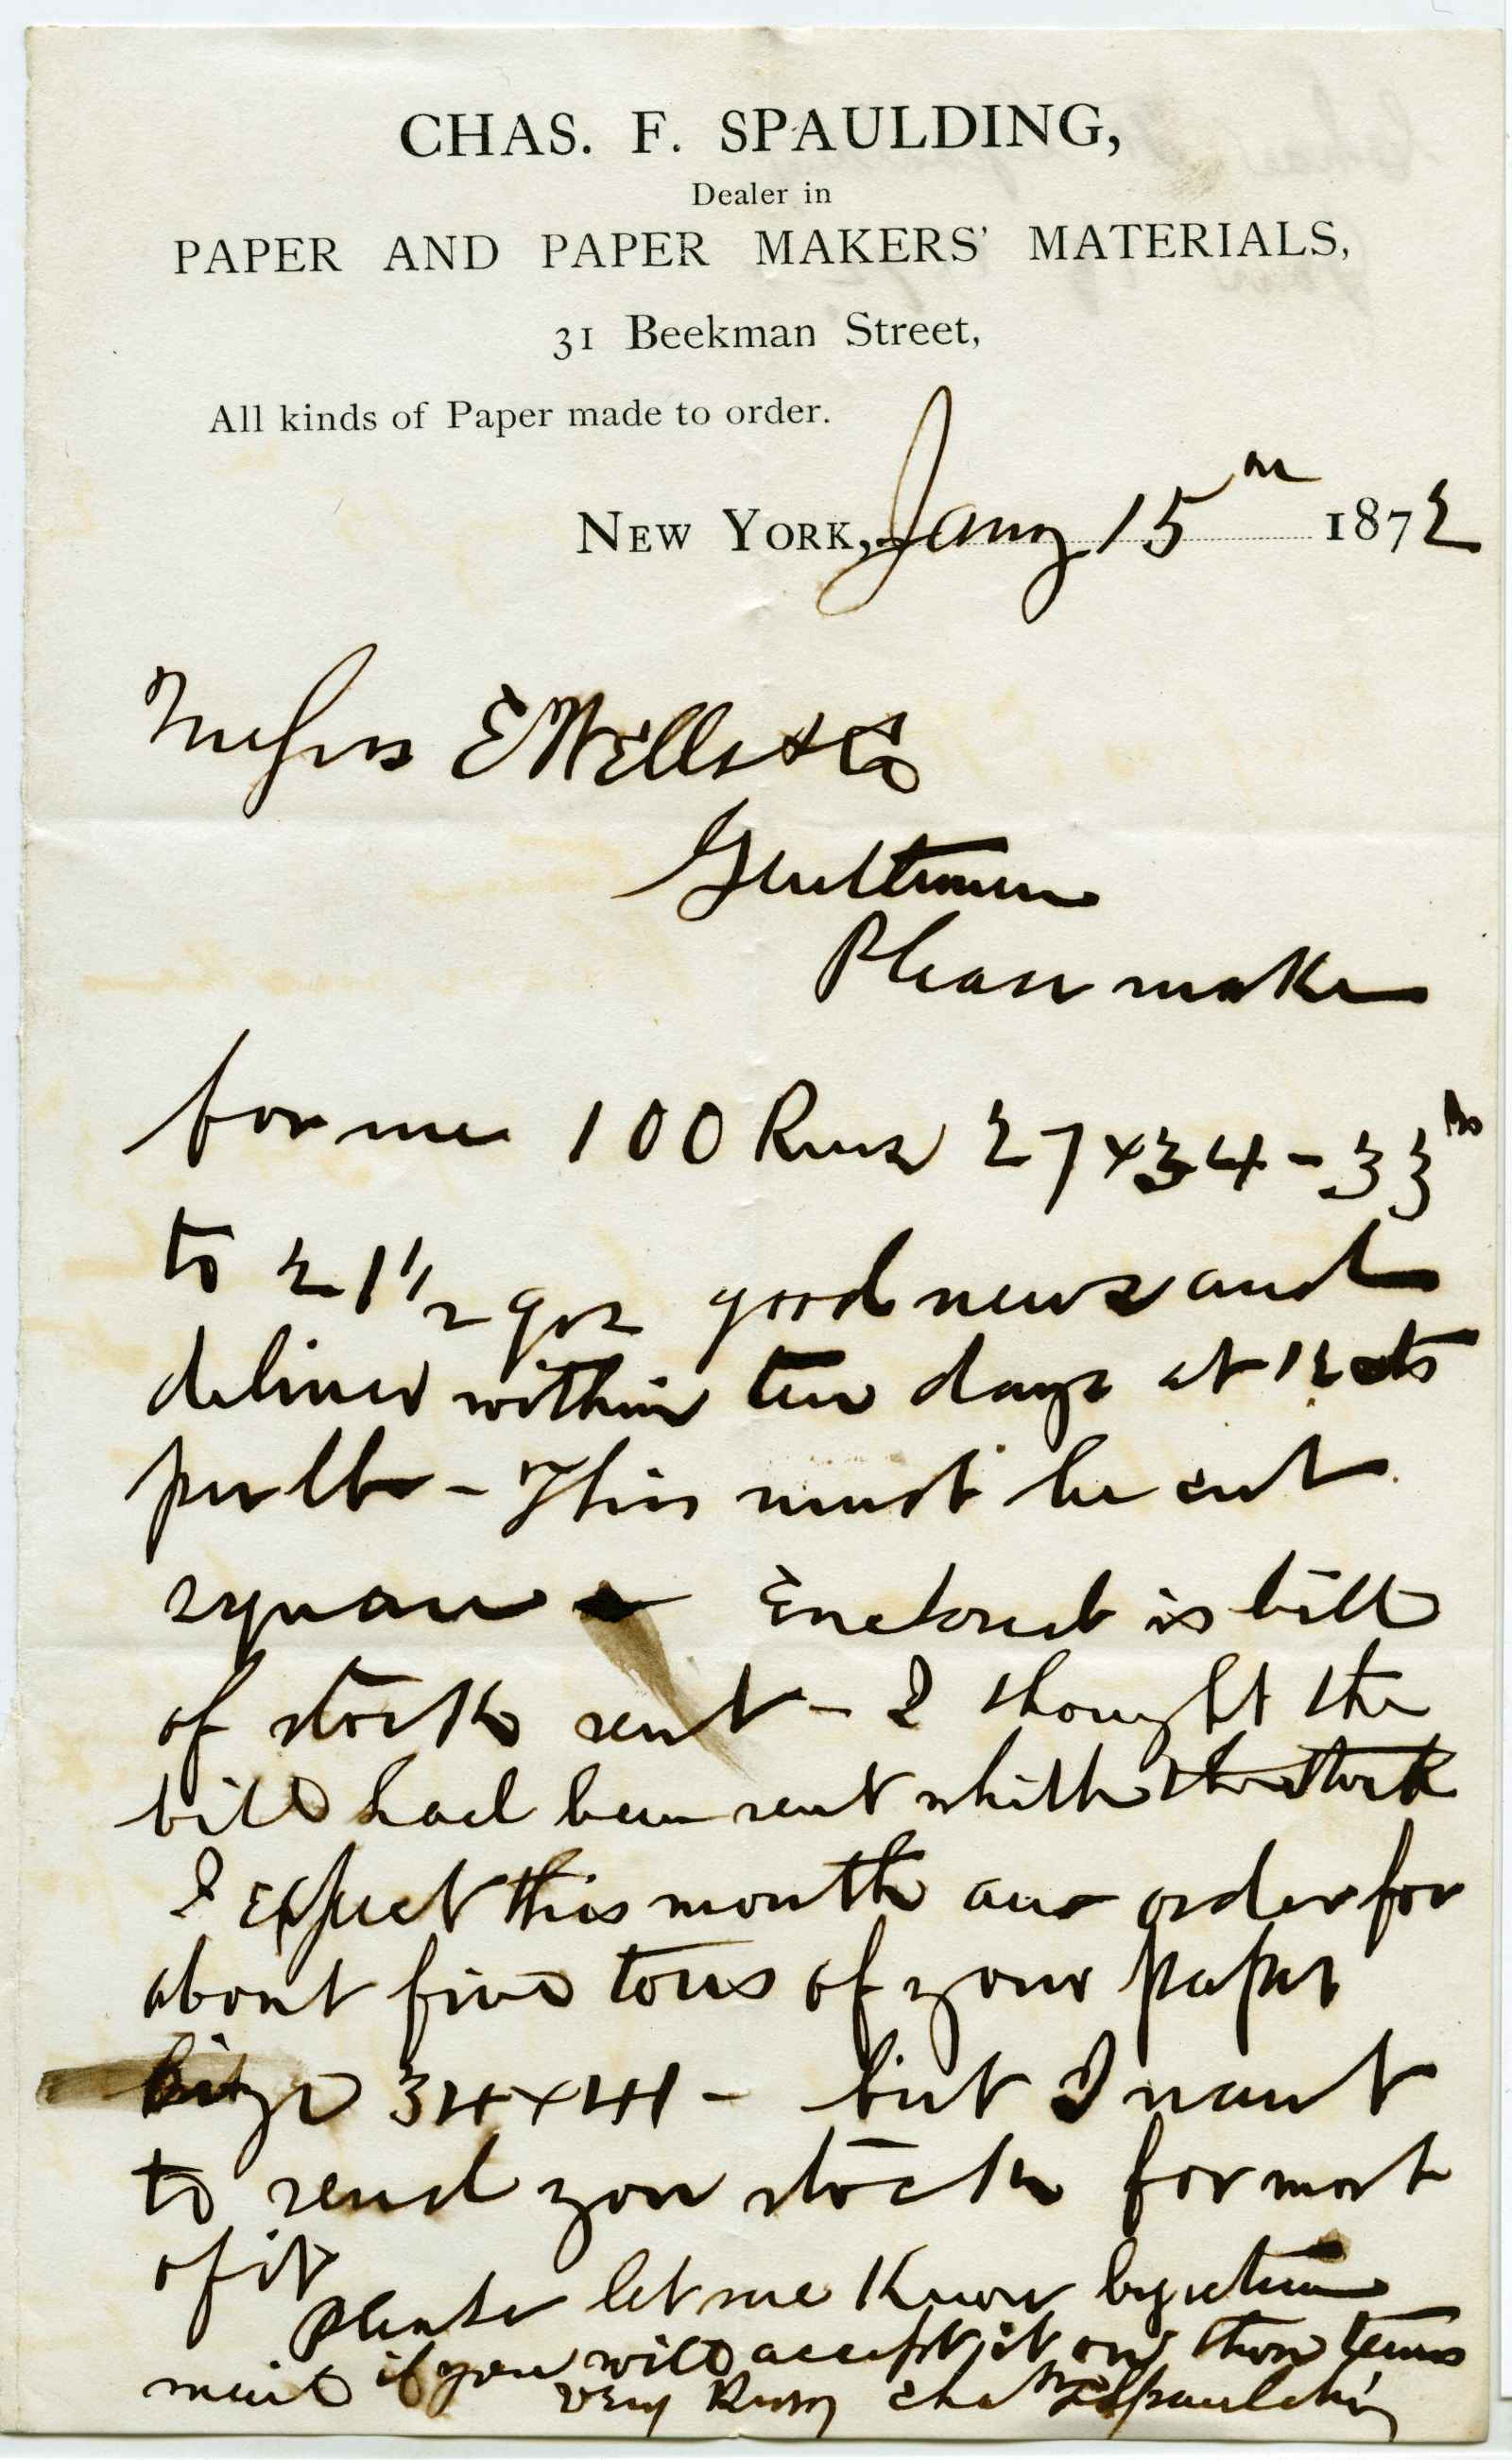 CHAS. F. SPAULDING,
Dealer in
PAPER AND PAPER MAKERS' MATERIALS,
31 Beekman Street,
All kinds of Paper made to order.
NEW YORK, Jany 15th 1872
Messrs E Wells & Co
Gentlemen
Please make
for me 100 Rms 27 x 34 - 33 lbs
to 21 1/2 qrs good news and
deliver within ten days at 12 cts
per lb - This must be cut
square Enclosed is bill
of stock sent - I thought the
bill had been sent whith the stock
I expect this month an order for
about five tons of your paper
size 34 x 44 - but I want
to send you stock for most
of it
Please let me know by return
mail if you will accept it on these terms
very Resy Chas F Spaulding